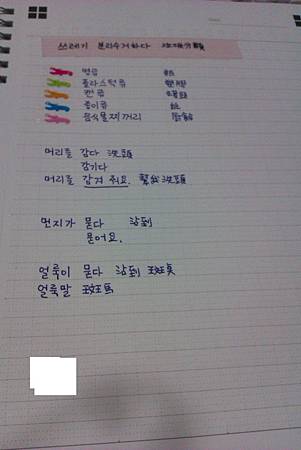 쓰레기 분리수거하다 垃圾分類
병류 瓶
플라스틱류 塑膠
캔류 罐頭
종이류 紙
음식물찌꺼기 廚餘
머리를 감다 洗頭
감기다
머리를 감겨 줘요. 幫我洗頭
먼지가 묻다 沾到
묻어요.
얼룩이 묻다 沾到 斑点
얼룩말 斑馬